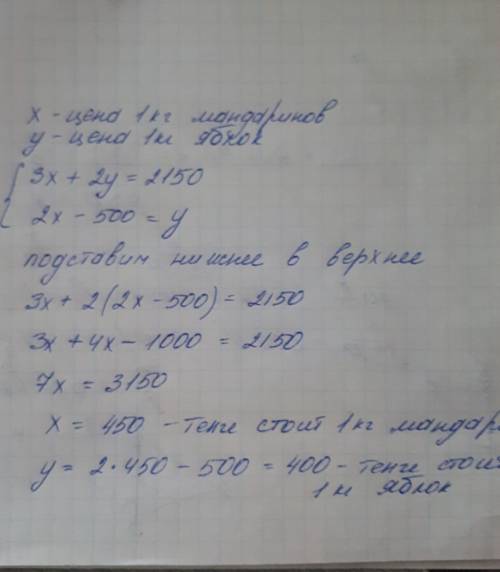 x - цена 1кг мандаринов
y - цена 1кг яблок
3x + 2y = 2150
2x - 500 = y
подставим нижнее в верхнее
3x + 2(2x - 500) = 2150
3x + 4x - 1000 = 2150
7x = 3150
x = 450 - тенге стоит 1кг мандари
y = 2·450 - 500 = 400 - тенге стоит
1кг яблок